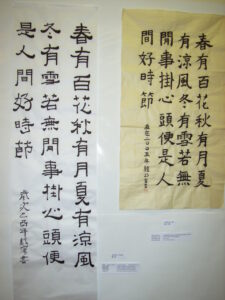 春有百花秋有月夏
有涼風冬有雪若無
閒事掛心頭便是人
間好時節
二〇〇五年
春有百花秋有月夏有涼風
冬有雪若無閒事掛心頭便
是人間好時節
歲次乙酉年